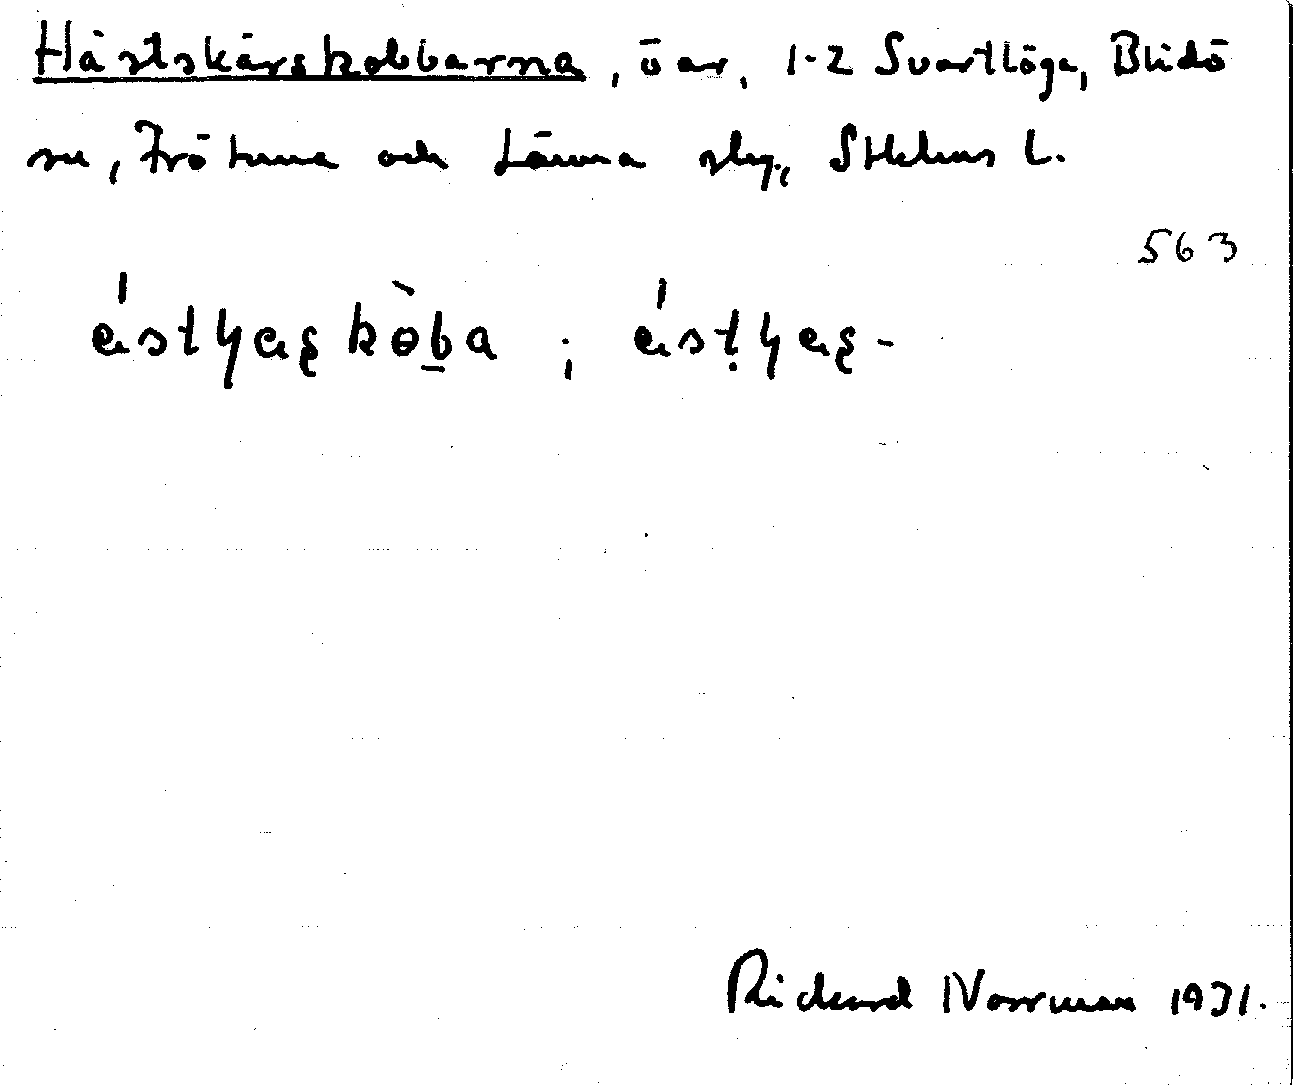 Hästskärskobbarna, öar, 1-2 Svartlöga, Blidö
sn, Frötuna och Länna slg., Sthlms l.
563
Rickard Norrman 1931.